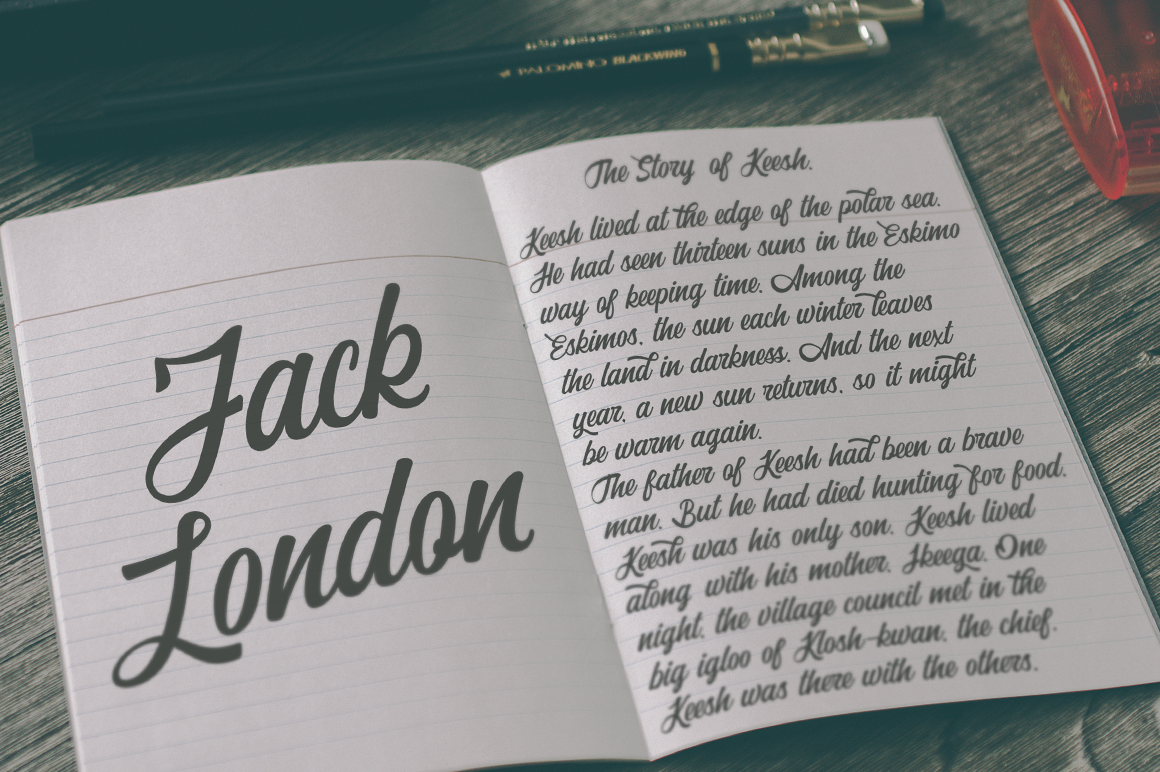 PALOMINO BLACKWING
Jack
London
The Story of Keesh.
Keesh lived at the edge of the polar sea.
He had seen thirteen suns in the Eskimo
way of keeping time. Among the
Eskimos, the sun each winter leaves
the land in darkness. And the next
year, a new sun returns, so it might
be warm again.
The father of Keesh had been a brave
man. But he had died hunting for food.
Keesh was his only son. Keesh lived
along with his mother, Ikeega. One
night, the village council met in the
big igloo of Klosh-kwan, the chief.
Keesh was there with the others.